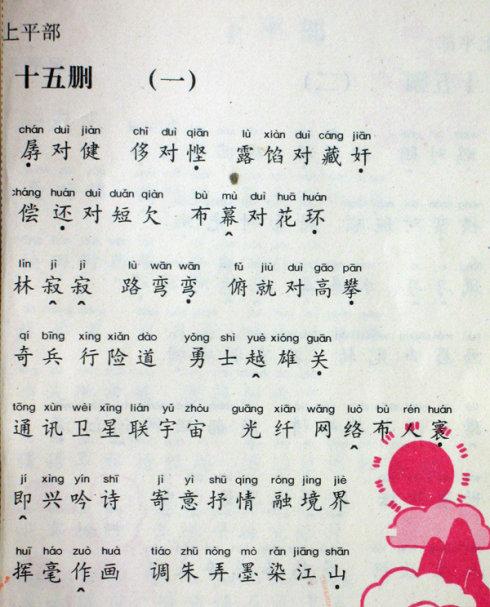 上平部
十五删 (一)
chán duì jiàn chǐ duì qiān lù xiàn duì cáng jiān
孱对健 侈对悭 露馅对藏奸
cháng huán duì duǎn qiàn bù mù duì huā huán
偿还对短欠 布幕对花环
lín jì jì lù wān wān fǔ jiù duì gāo pān
林寂寂 路弯弯 俯就对高攀
qí bīng xíng xiǎn dào yǒng shì yuè xióng guān
奇兵行险道 勇士越雄关
tōng xùn wèi xīng lián yǔ zhòu guāng xiān wǎng luò bù rén huán
通讯卫星联宇宙 光纤网络布人寰
jí xìng yín shī jì yì shū qíng róng jìng jiè
即兴吟诗 寄意抒情融境界
huī háo zuò huà tiáo zhū nòng mò rǎn jiāng shān
挥毫作画 调朱弄墨染江山